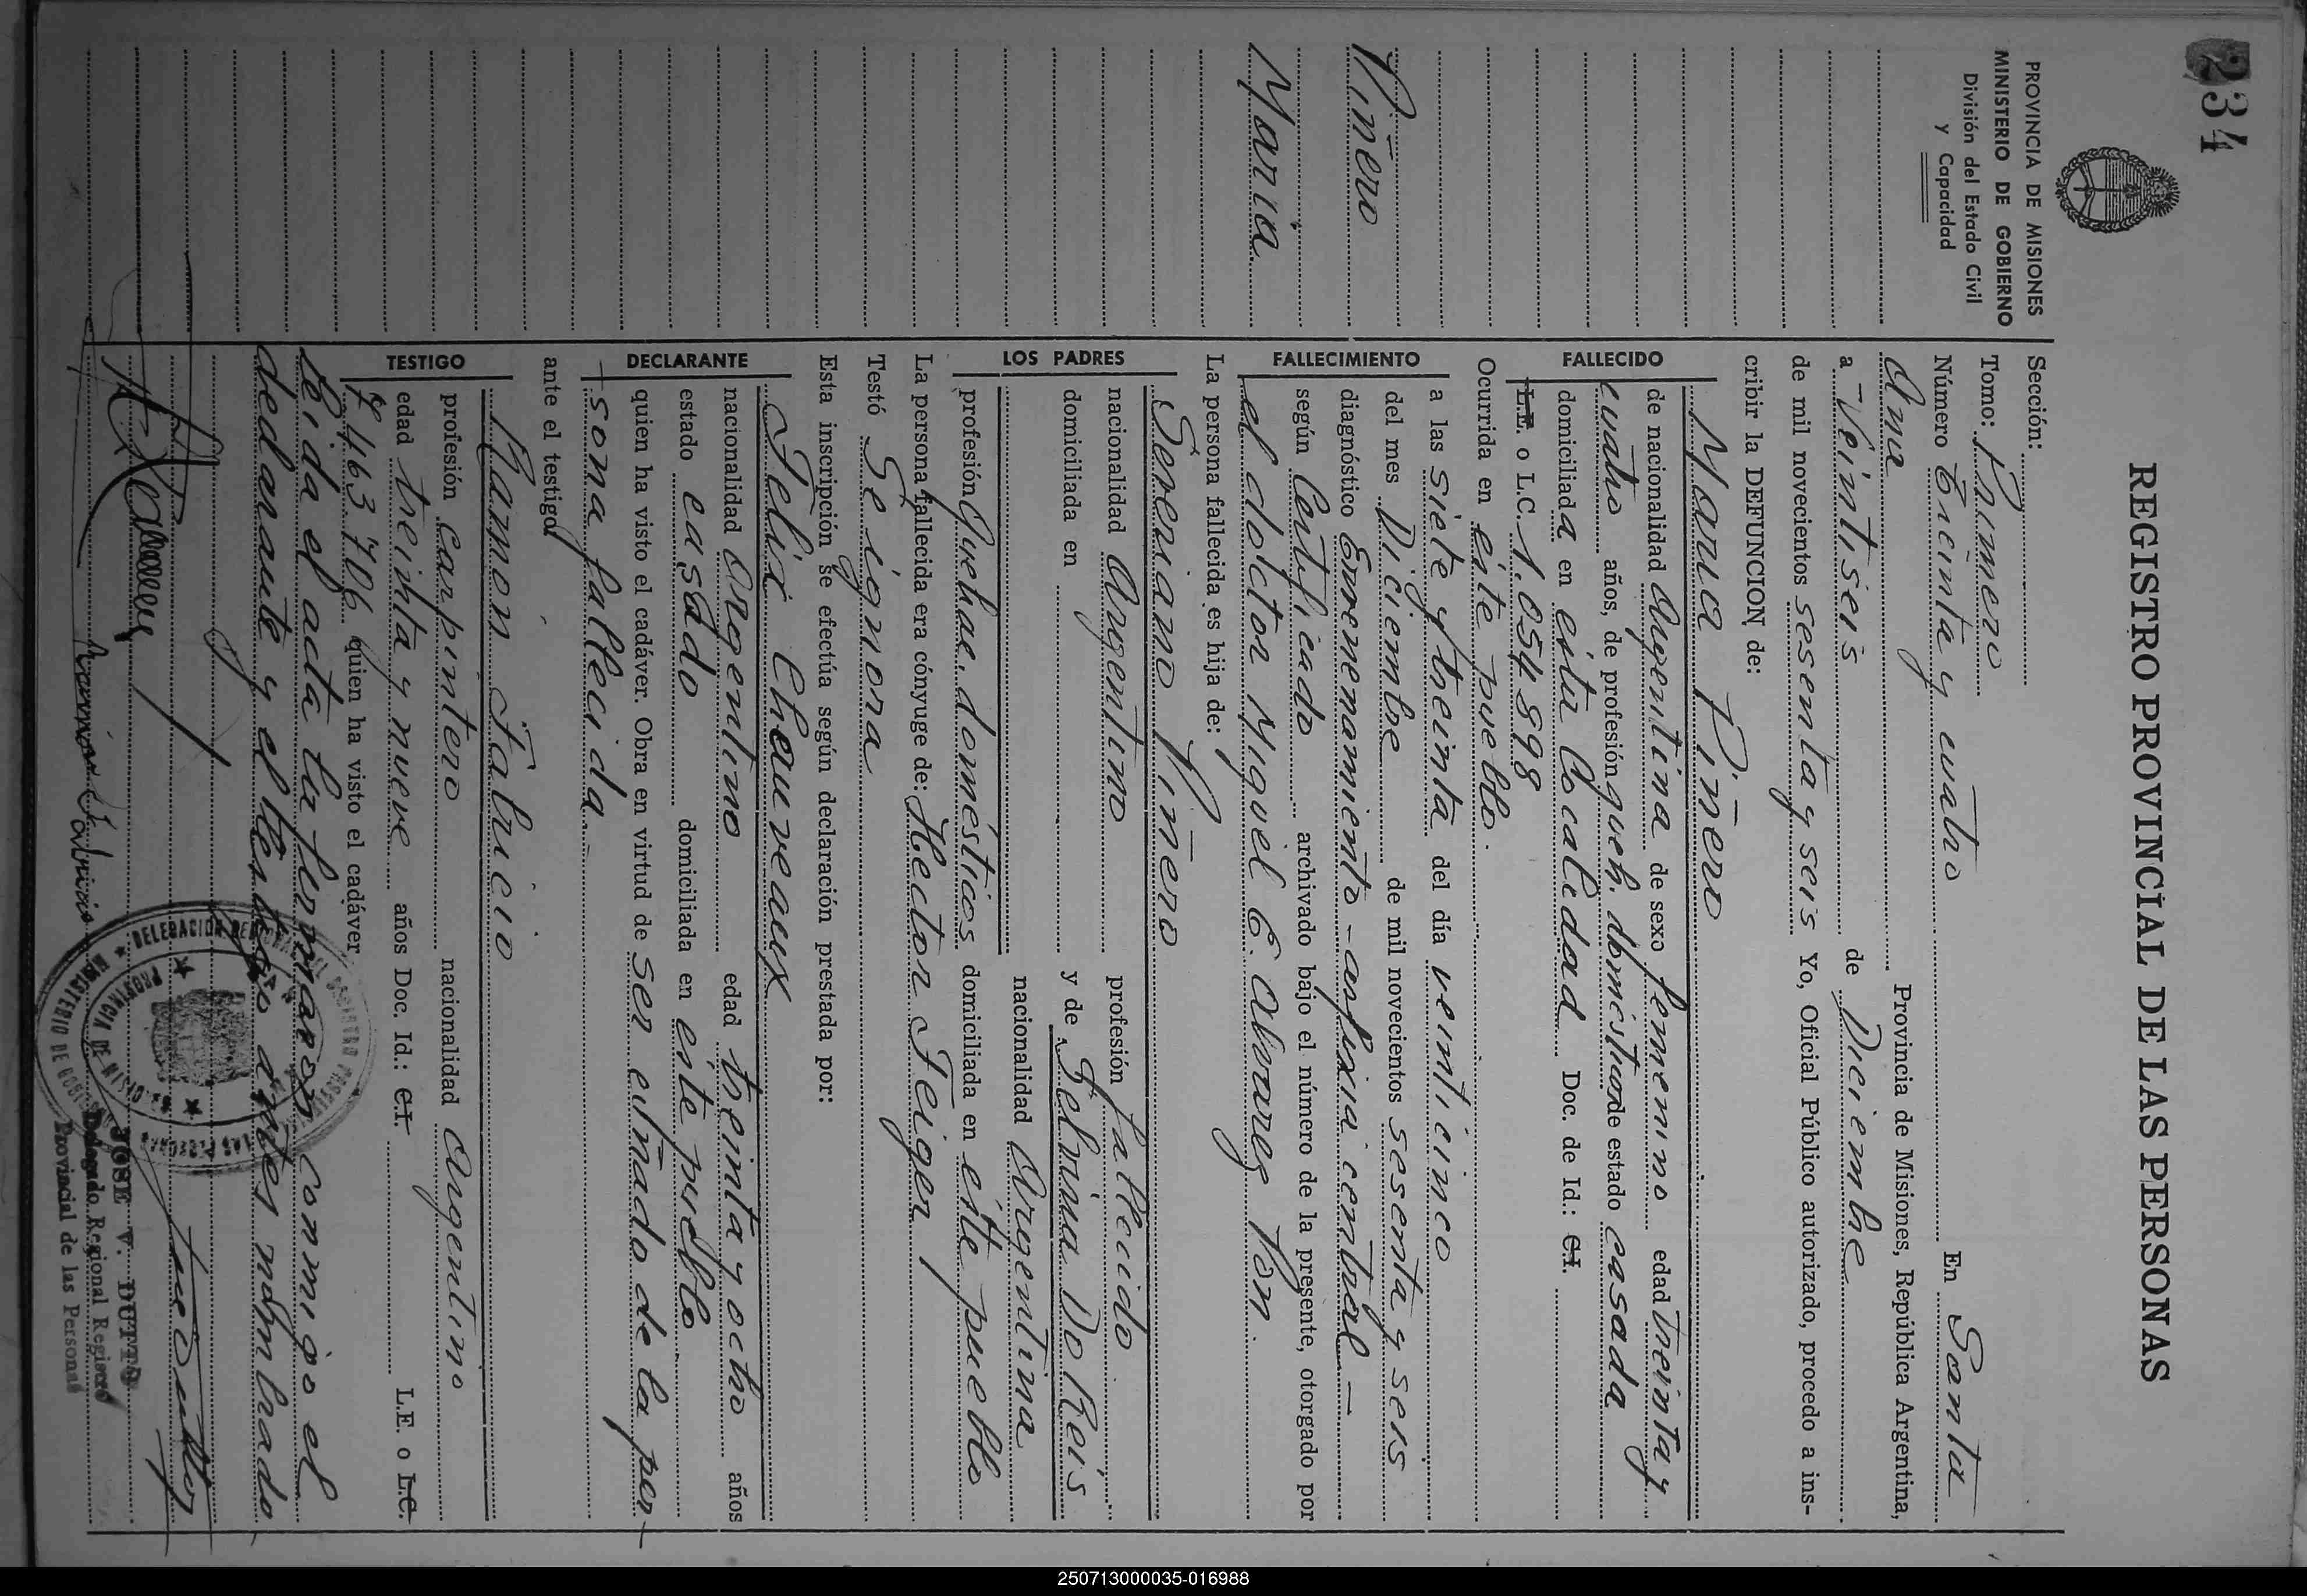 234
REGISTRO PROVINCIAL DE LAS PERSONAS
PROVINCIA DE MISIONES
MINISTERIO DE GOBIERNO
División del Estado Civil
y Capacidad
Piñero
Maria
Sección:
Tomo: Primero
Número treinta y cuatro En Santa
Ana Provincia de Misiones, República Argentina,
a Veintiseis de Diciembre
de mil novecientos sesenta y seis Yo, Oficial Público autorizado, procedo a ins-
cribir la DEFUNCION de:
FALLECIDO
Maria Piñero
de nacionalidad Argentina de sexo femenino edad treinta y
cuatro años, de profesión queh. domésticos de estado casada
domiciliada en esta localidad Doc. de Id.: C.I.
L.E. o L.C. 1.054.898
Ocurrida en éste pueblo.
FALLECIMIENTO
a las siete y treinta del día veinticinco
del mes Diciembre de mil novecientos sesenta y seis
diagnóstico Envenenamiento - asfixia central -
según Certificado archivado bajo el número de la presente, otorgado por
el doctor Miguel C. Alvarez Ton.
La persona fallecida es hija de:
LOS PADRES
Severiano Piñero
nacionalidad Argentino profesión fallecido
domiciliada en y de Selvina Do Reis
nacionalidad Argentina
profesión Quehac. domésticos domiciliada en éste pueblo
La persona fallecida era cónyuge de: Hector Feiger
Testó Se ignora
Esta inscripción se efectúa según declaración prestada por:
DECLARANTE
Felix Chauveaux
nacionalidad Argentino edad treinta y ocho años
estado casado domiciliada en éste pueblo
quien ha visto el cadáver. Obra en virtud de ser cuñado de la per-
sona fallecida.-
ante el testigo
TESTIGO
Ramon Fabricio
profesión carpintero nacionalidad Argentino
edad treinta y nueve años Doc. Id.: C.I. L.E. o L.C.
7.463.706 quien ha visto el cadáver
Leida el acta la firmaron conmigo el
declarante y el testigo antes nombrado
Ramón Fabricio
JOSE V. DUTTO
Delegado Regional Registro
Provincial de las Personas
MINISTERIO DE GOBIERNO
PROVINCIA DE MISIONES
250713000035-016988